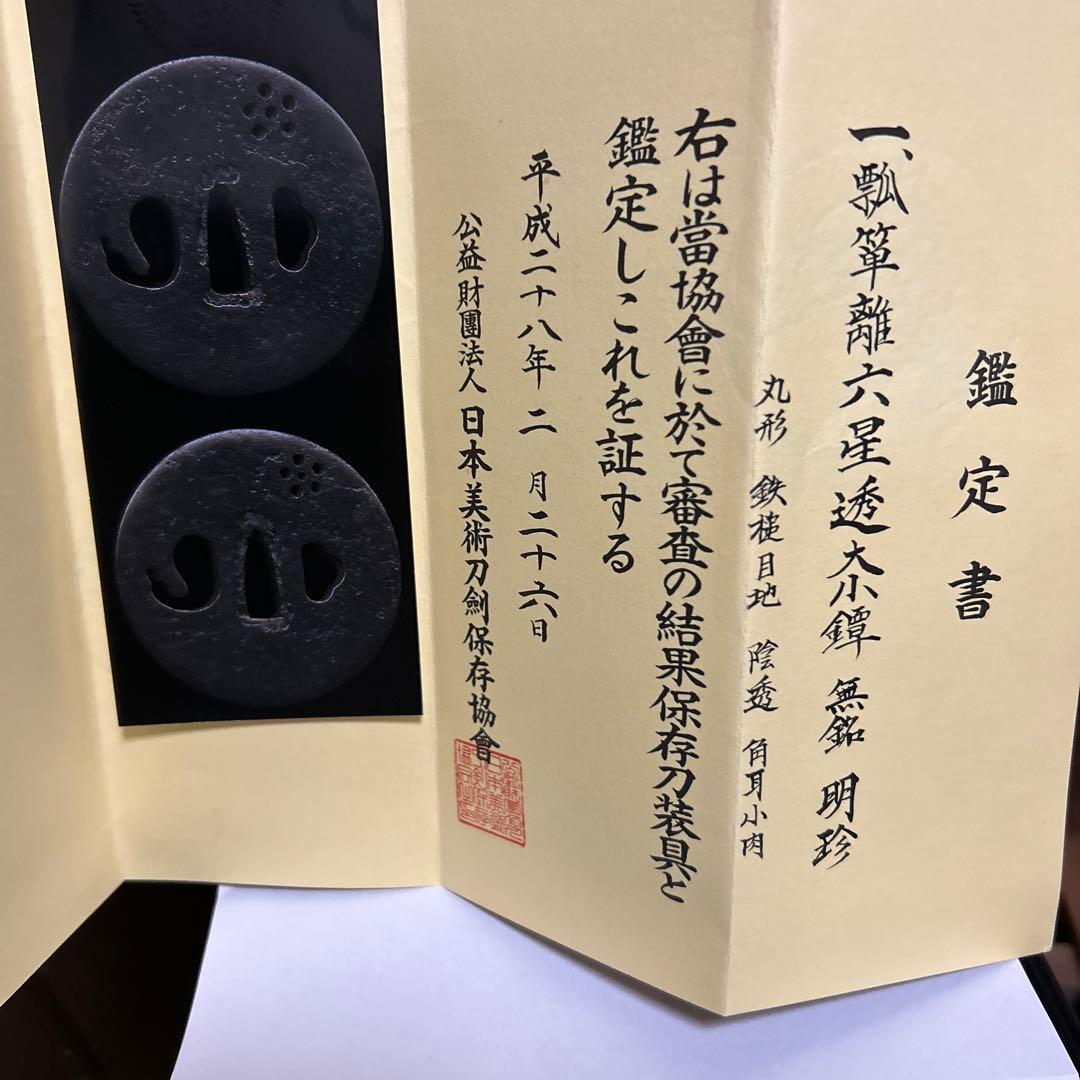 鑑定書
一、瓢箪離六星透大小鐔 無銘 明珍
丸形 鉄槌目地 陰透 角耳小肉
右は當協會に於て審査の結果保存刀装具と
鑑定しこれを証する
平成二十八年二月二十六日
公益財團法人 日本美術刀劍保存協會